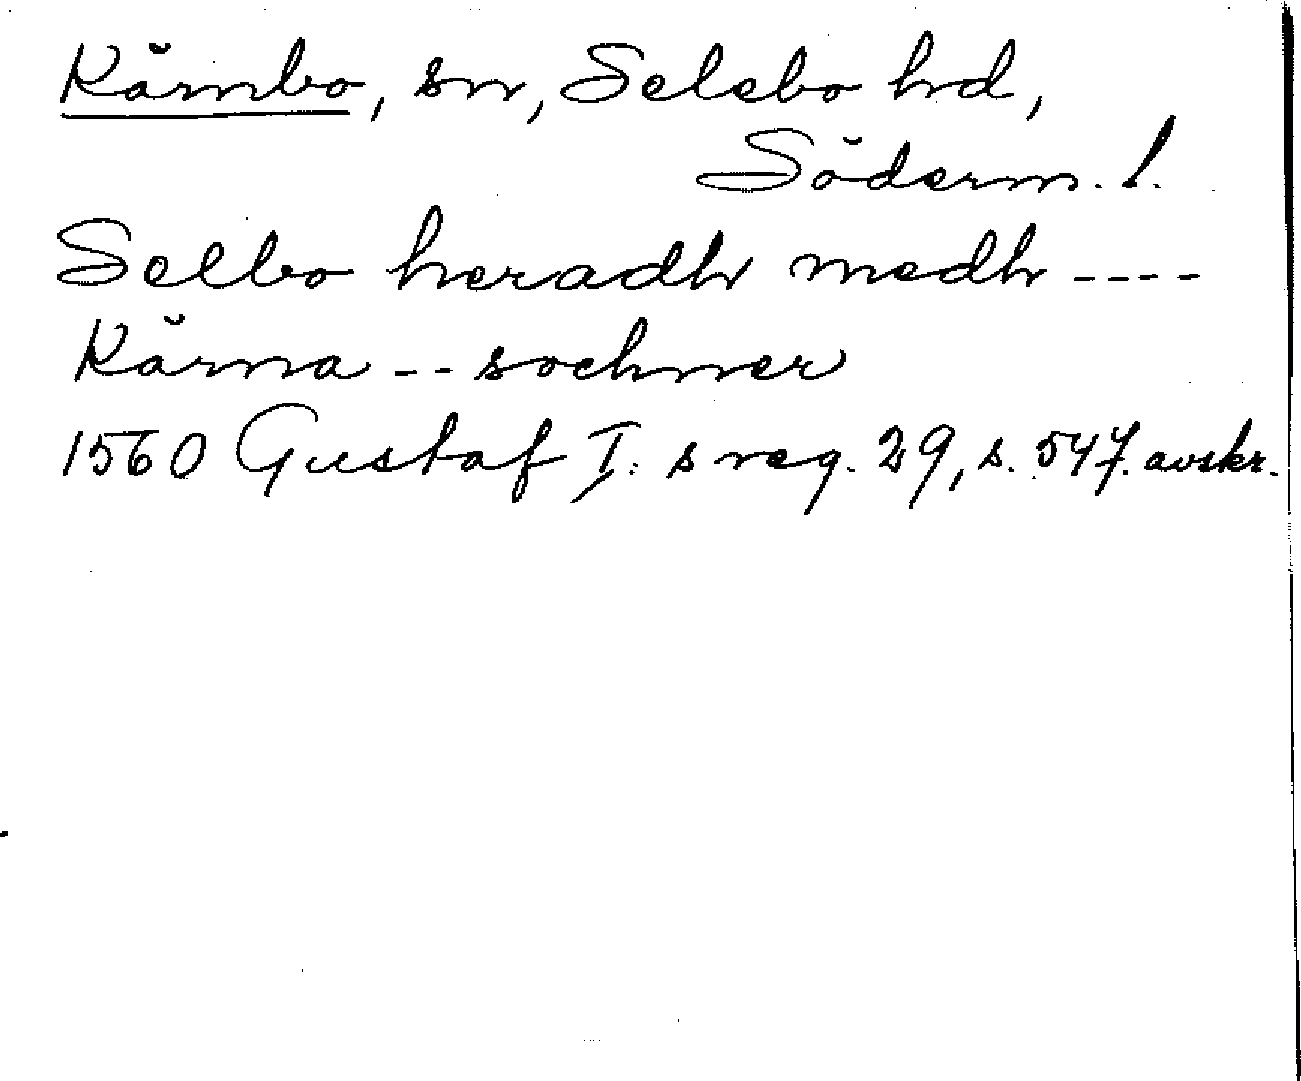 Kärnbo, sn, Selebo hd,
Söderm. l.
Selbo heradh medh ----
Kärna -- sochner
1560 Gustaf I: s reg. 29, s. 547. avskr.